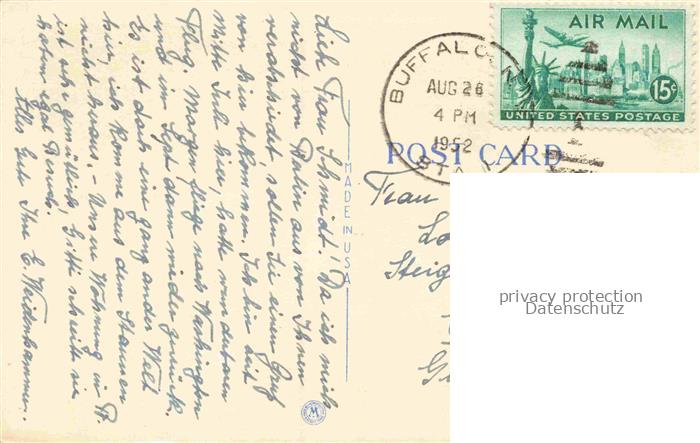 Lieb Frau Schmidt! Da ich mich
nicht von Berlin aus von Ihnen
verabschiedet sollen Sie einen Gruß
von hier bekommen. Ich bin seit
Mitte Juli hier, hatte wunderbaren
Flug. Morgen fliege nach Washington
und im Sept dann wieder zurück.
Es ist doch eine ganz andere Welt
hier, ich komme aus dem Staunen
nicht heraus. – Unsere Wohnung in
ist sehr gemütlich, bitte schreibt sie
Alles Gute Ihr E.
MADE IN USA
BUFFALO N.Y.
AUG 26
4 PM
1952
STA
AIR MAIL
15¢
UNITED STATES POSTAGE
POST CARD
Frau
Steig
privacy protection
Datenschutz